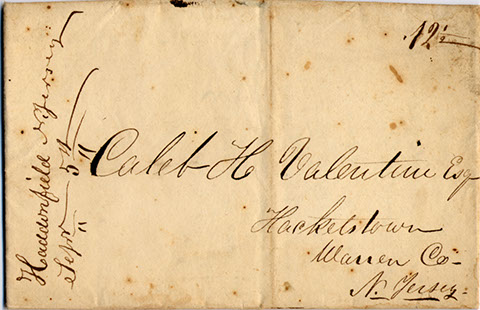 Haddonfield N Jersey
Sepr 5th
12½
Caleb H Valentine Esq
Hacketstown
Warren Co-
N. Jersey.